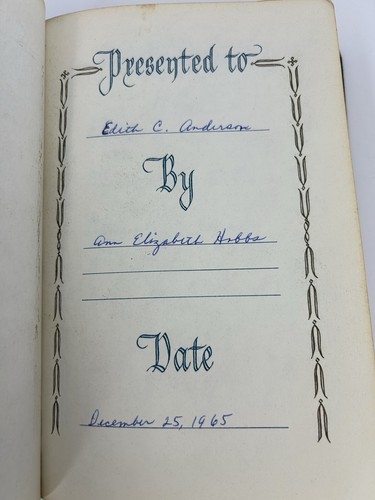 Presented to
Edith C. Anderson
By
Ann Elizabeth Hobbs
Date
December 25, 1965